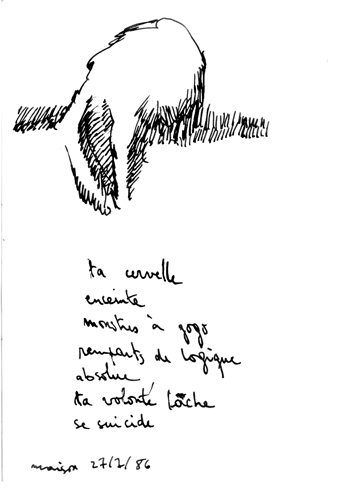 ta cervelle
enceinte
monstres à gogo
remparts de logique
absolue,
ta volonté lâche
se suicide
maison 27/7/86